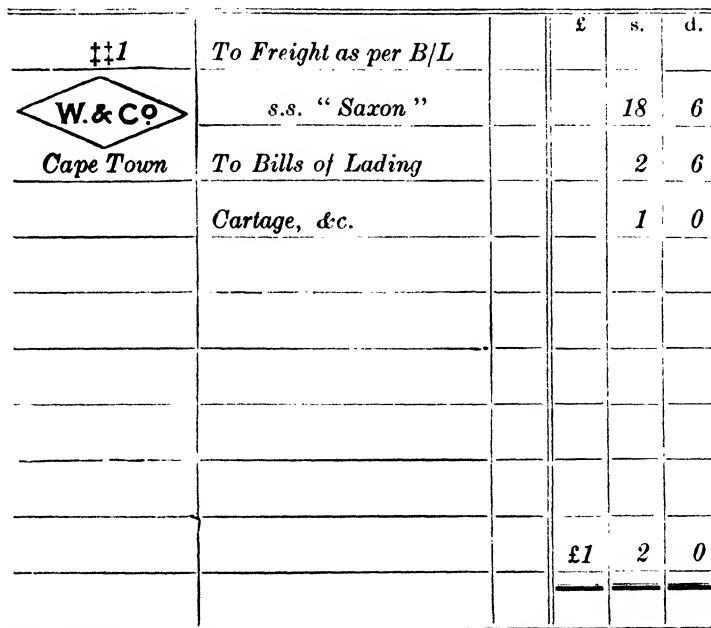 £ s. d.
‡‡1 To Freight as per B/L
W. & Co s.s. “ Saxon ” 18 6
Cape Town To Bills of Lading 2 6
Cartage, &c. 1 0
£1 2 0